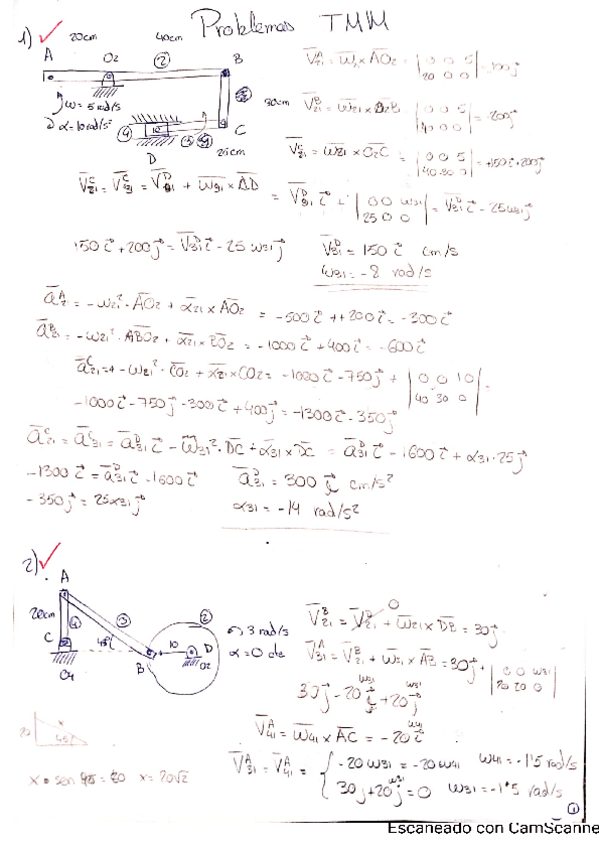 Problemas TMM
1) ✓ 20cm 40cm
A O2 ② B
ω = 5 rad/s
α = 10 rad/s²
30cm
C
25cm
D
④
V̄ᴬ₂₁ = ω̄₂₁ x ĀO₂ = | 0 0 5 / 20 0 0 | = 100 j⃗
V̄ᴮ₂₁ = ω̄₂₁ x O̅₂B̅ | 0 0 5 / 40 0 0 | = 200 j⃗
V̄ᶜ₂₁ = ω̄₂₁ x O̅₂C̅ = | 0 0 5 / 40 30 0 | = +150 i⃗ + 200 j⃗
V̄ᶜ₂₁ = V̄ᶜ₃₁ = V̄ᴰ₃₁ + ω̄₃₁ x = V̄ᴰ₃₁ i⃗ + | 0 0 ω₃₁ / 25 0 0 | = V̄ᴰ₃₁ i⃗ - 25 ω₃₁ j⃗
150 i⃗ + 200 j⃗ = V̄ᴰ₃₁ i⃗ - 25 ω₃₁ j⃗ V̄ᴰ₃₁ = 150 i⃗ cm/s
ω₃₁ = -8 rad/s
āᴬ₂₁ = -ω₂₁² · ĀO₂ + ᾱ₂₁ x ĀO₂ = -500 i⃗ + +200 i⃗ = -300 i⃗
āᴮ₂₁ = -ω₂₁² · BO₂ + ᾱ₂₁ x = -1000 i⃗ + 400 i⃗ = -600 i⃗
āᶜ₂₁ = -ω₂₁² · C̅O₂ + ᾱ₂₁ x CO₂ = -1000 i⃗ - 750 j⃗ + | 0 0 10 / 40 30 0 | =
-1000 i⃗ - 750 j⃗ - 300 i⃗ + 400 j⃗ = -1300 i⃗ - 350 j⃗
āᶜ₂₁ = āᶜ₃₁ = āᴰ₃₁ i⃗ - ω̄₃₁² · D̅C̅ + ᾱ₃₁ x D̅C̅ = āᴰ₃₁ i⃗ - 1600 i⃗ + α₃₁ · 25 j⃗
-1300 i⃗ = āᴰ₃₁ i⃗ - 1600 i⃗ āᴰ₃₁ = 300 i⃗ cm/s²
-350 j⃗ = 25 α₃₁ j⃗ α₃₁ = -14 rad/s²
2) ✓
A
20cm ④ ③ ②
C 45º 10 D
O4 B O2
3 rad/s
α = 0 cte
V̄ᴮ₂₁ = V̄ᴰ₂₁ + ω̄₂₁ x D̅B̅ = 30 j⃗
V̄ᴬ₃₁ = V̄ᴮ₂₁ + ω̄₃₁ x A̅B̅ = 30 j⃗ + | 0 0 ω₃₁ / 20 20 0 |
30 j⃗ - 20 ω₃₁ i⃗ + 20 ω₃₁ j⃗
V̄ᴬ₄₁ = ω̄₄₁ x A̅C̅ = -20 ω₄₁ i⃗
V̄ᴬ₃₁ = V̄ᴬ₄₁ = { -20 ω₃₁ = -20 ω₄₁ ω₄₁ = -1'5 rad/s
30 j + 20 ω₃₁ j⃗ = 0 ω₃₁ = -1'5 rad/s
20 x 45º
x · sen 45 = 20 x = 20√2
①
Escaneado con CamScanne